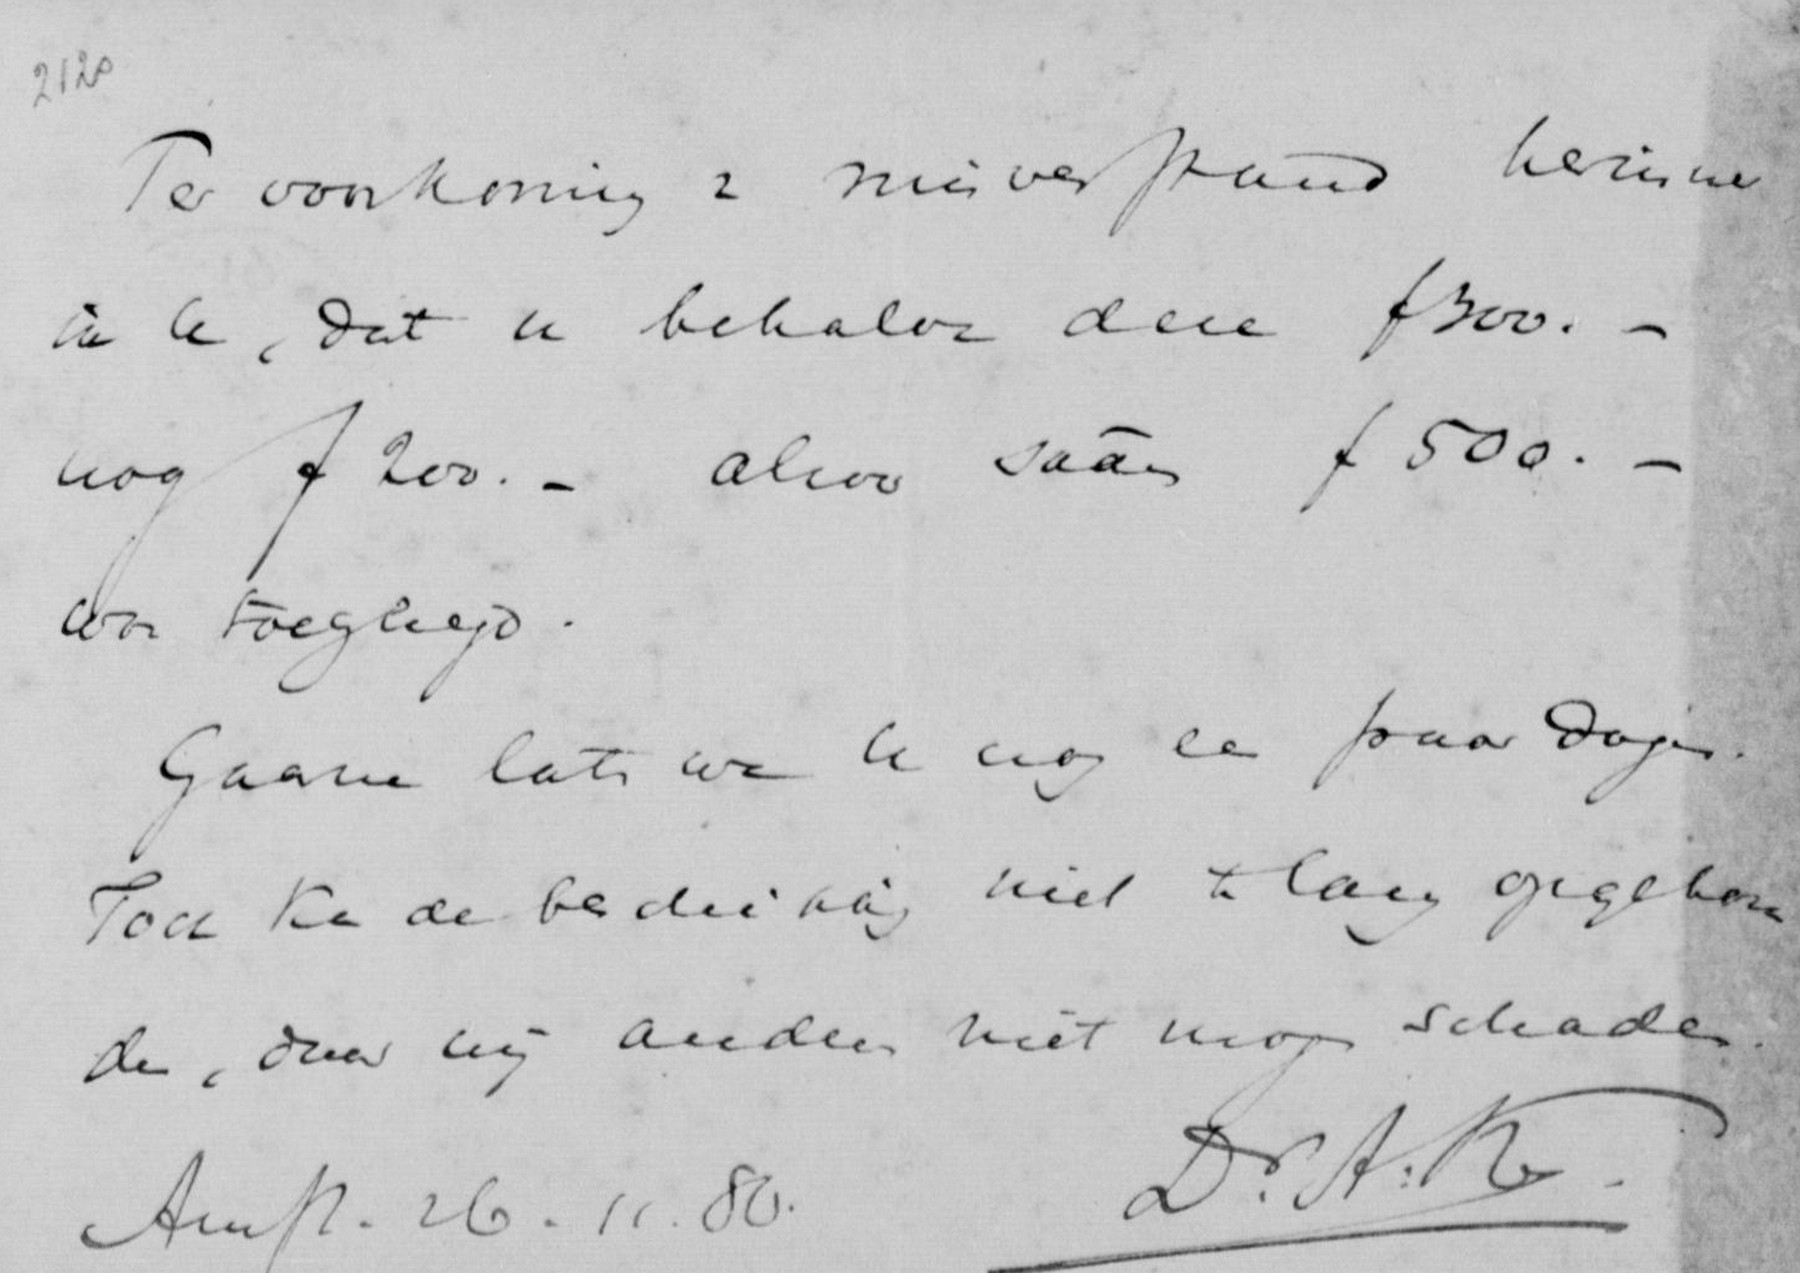 2120
Ter voorkoming v misverstand herinner
ik U, dat U behalve deze f 300. -
nog f 200. - alzoo saam f 500. -
won toegelegd.
Gaarne laten we U nog een paar dagen.
Toch kan de bediening niet te lang opgehoude
den, daar wij anderen niet mogen schaden.
Amst. 26. 11. 80. Dr. A. K.